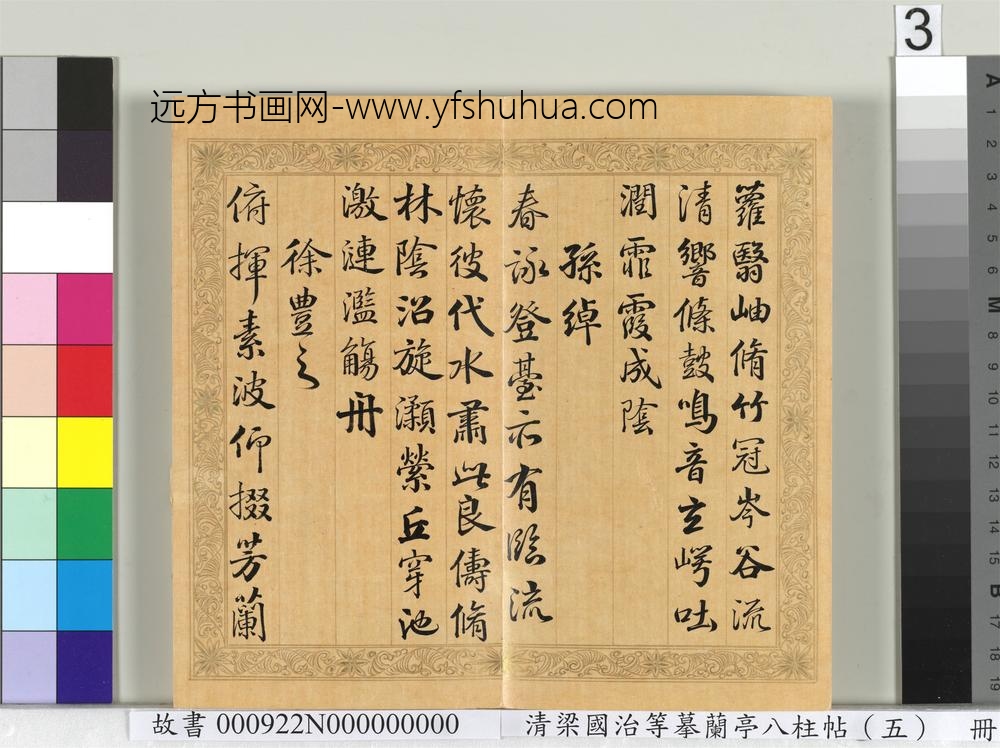 3
远方书画网-www.yfshuhua.com
蘿翳岫脩竹冠岑谷流
清響條鼓鳴音玄崿吐
潤霏霞成陰
孫綽
春詠登臺亦有臨流
懷彼代水肅此良儔脩
林陰沼旋瀨縈丘穿池
激漣濫觴舟
徐豊之
俯揮素波仰掇芳蘭
A 1 2 3 4 5 6 M 8 9 10 11 12 13 14 15 B 17 18 19
故書 000922N000000000
清梁國治等摹蘭亭八柱帖（五） 冊